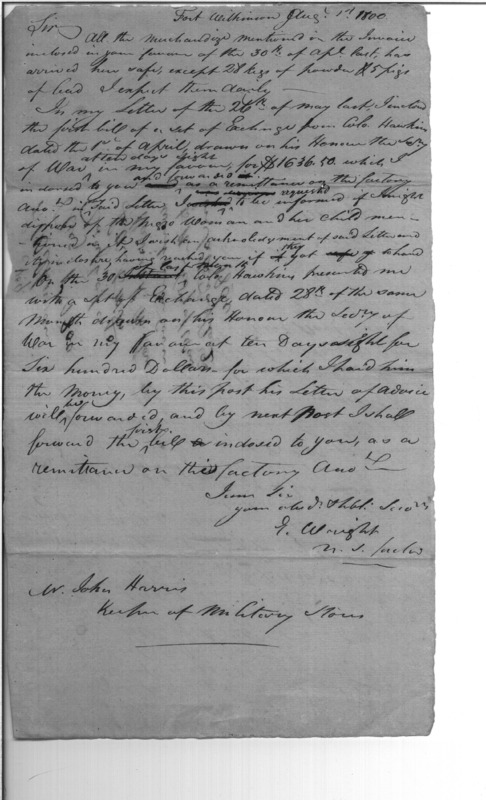 Fort Wilkinson Augt. 1st 1800
Sir
All the Merchandize mentioned in the Invoice
inclosed in your favour of the 30th of Apl. last, has
arrived here safe, except 28 kegs of powder & 5 pigs
of lead I expect them daily —
In my Letter of the 26th of May last, I inclosed
the first bill of a set of Exchange from Colo. Hawkins
dated the 1st of April, drawn on his Honour the Secy
of War at ten days sight in my favour, for $1636.50 which I
indorsed to you and forwarded as a remittance on the factory
Acct. in said Letter I requested to be informed if I might
dispose of the Negro Woman and her Child men-
tioned in it I wish an acknowledgment of said Letter and
inclosure, having reached you if they got to hand
On the 30 of last Month Colo. Hawkins presented me
with a set of Exchange, dated 28th of the same
Month drawn on his Honour the Secry of
War in my favour at ten Days sight for
Six hundred Dollars for which I paid him
the Money, by this post his Letter of advice
will be forwarded, and by next Post I shall
forward the first bill indosed to you, as a
remittance on the factory Acct.
I am Sir
your obdt. Hble. Servt.
E. Wright
U. S. factor
Mr. John Harris
Keeper of Military Stores